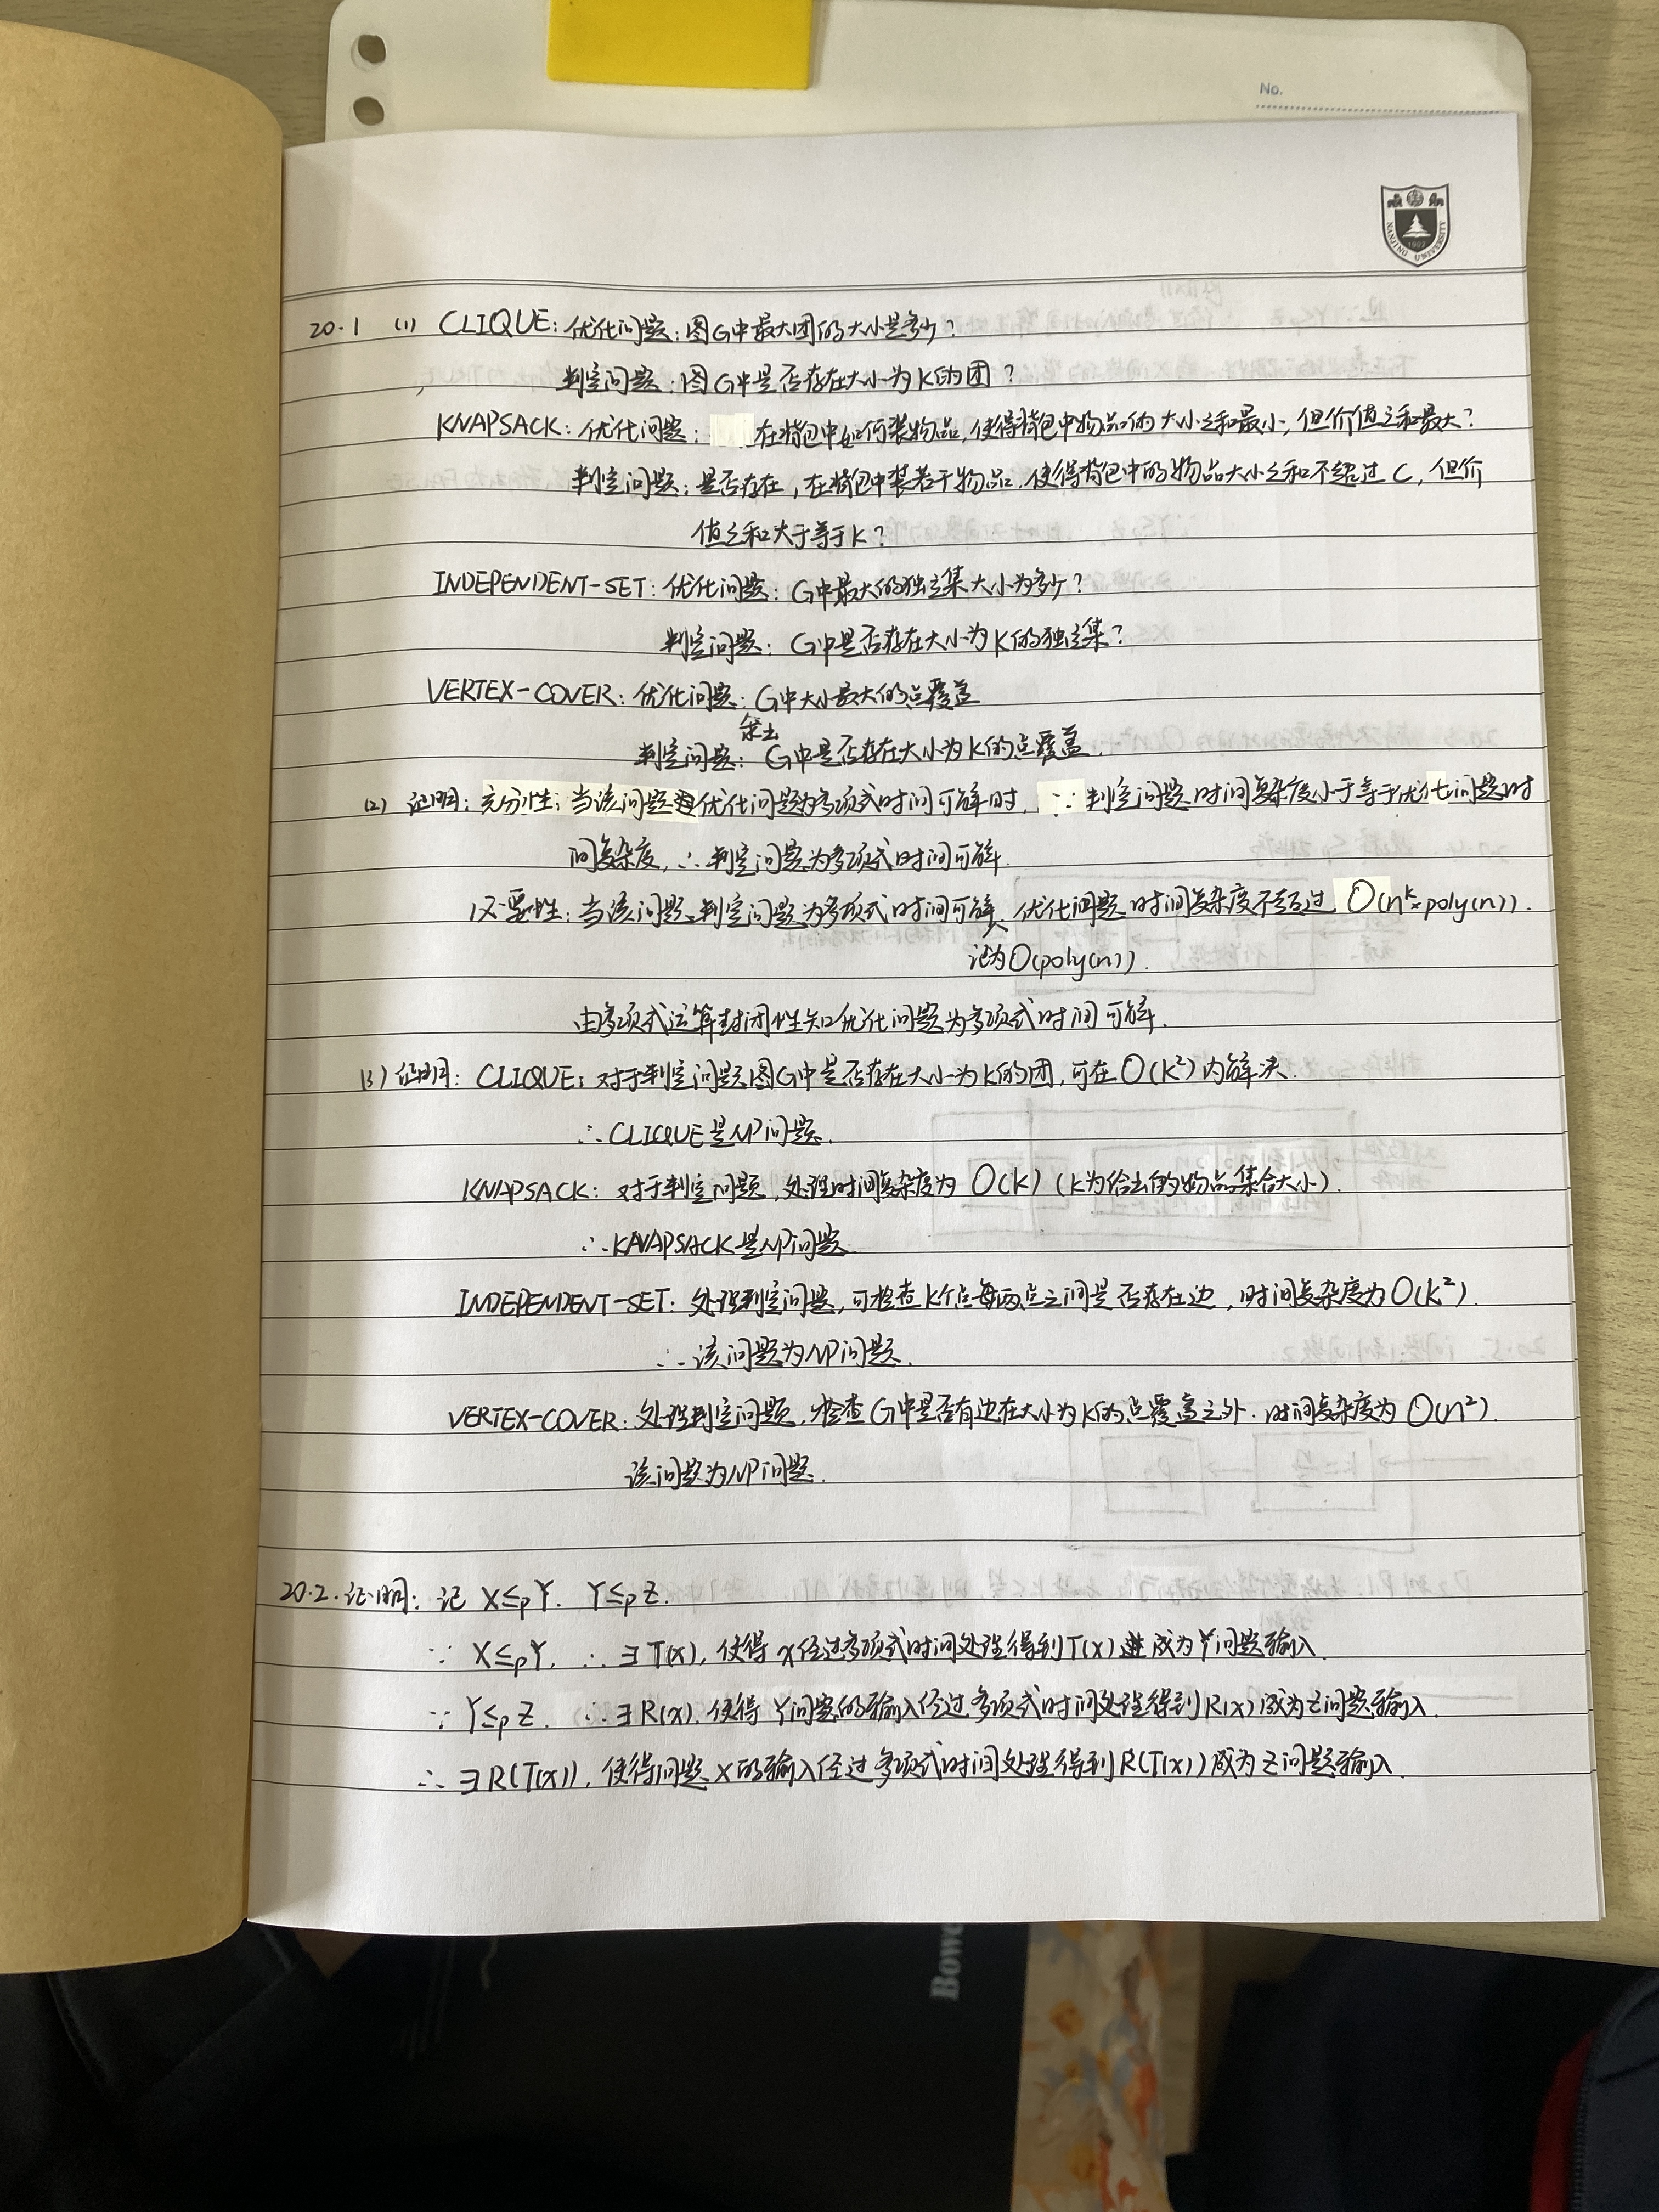 No.
NANJING UNIVERSITY
1902
20.1 (1) CLIQUE: 优化问题: 图G中最大团的大小是多少?
判定问题: 图G中是否存在大小为k的团?
KNAPSACK: 优化问题: 在背包中如何装物品, 使得背包中物品的大小之和最小, 但价值之和最大?
判定问题: 是否存在, 在背包中装若干物品, 使得背包中的物品大小之和不超过C, 但价
值之和大于等于k?
INDEPENDENT-SET: 优化问题: G中最大的独立集大小为多少?
判定问题: G中是否存在大小为k的独立集?
VERTEX-COVER: 优化问题: G中大小最大的点覆盖
判定问题: G中是否存在大小为k的点覆盖.
(2) 证明: 充分性: 当该问题优化问题为多项式时间可解时, ∵判定问题时间复杂度小于等于优化问题时
间复杂度, ∴判定问题为多项式时间可解.
必要性: 当该问题判定问题为多项式时间可解, 优化问题时间复杂度不超过 O(n^k×poly(n)).
记为O(poly(n)).
由多项式运算封闭性知优化问题为多项式时间可解.
(3) 证明: CLIQUE: 对于判定问题图G中是否存在大小为k的团, 可在O(k²)内解决.
∴CLIQUE是NP问题.
KNAPSACK: 对于判定问题, 处理时间复杂度为O(k) (k为给出的物品集合大小).
∴KNAPSACK是NP问题
INDEPENDENT-SET: 处理判定问题, 可检查k个点每两点之间是否存在边, 时间复杂度为O(k²).
∴该问题为NP问题.
VERTEX-COVER: 处理判定问题, 检查G中是否有边在大小为k的点覆盖之外. 时间复杂度为O(n²).
该问题为NP问题.
20.2. 证明: 记 X≤pY. Y≤pZ.
∵ X≤pY, ∴∃T(x), 使得x经过多项式时间处理得到T(x)成为Y问题输入.
∵ Y≤pZ. ∴∃R(x), 使得Y问题的输入经过多项式时间处理得到R(x)成为Z问题输入.
∴ ∃R(T(x)), 使得问题X的输入经过多项式时间处理得到R(T(x))成为Z问题输入.